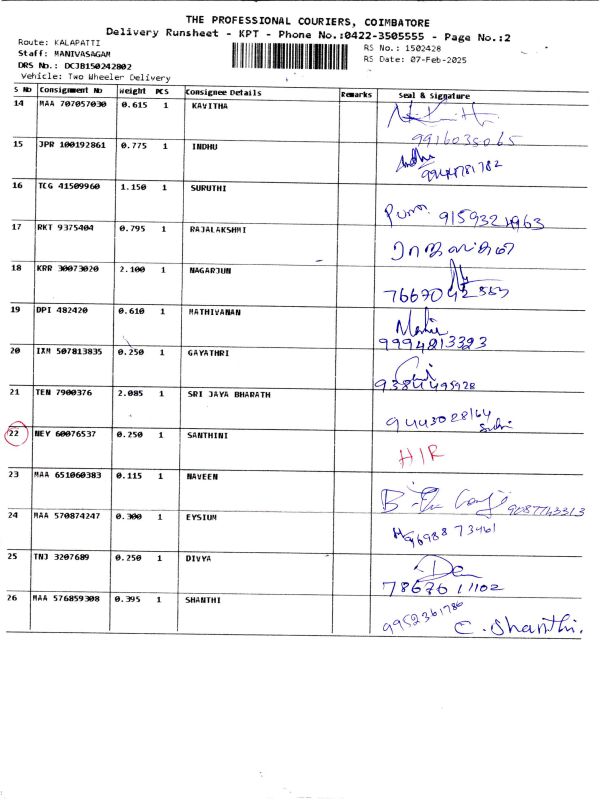 THE PROFESSIONAL COURIERS, COIMBATORE
Delivery Runsheet - KPT - Phone No.:0422-3505555 - Page No.:2
Route: KALAPATTI
Staff: MANIVASAGAM
DRS No.: DCJB150242802
Vehicle: Two Wheeler Delivery
RS No.: 1502428
RS Date: 07-Feb-2025
S No Consignment No Weight PCS Consignee Details Remarks Seal & Signature
14 MAA 707057030 0.615 1 KAVITHA
9916035065
15 JPR 100192861 0.775 1 INDHU Indhu
9944781782
16 TCG 41509960 1.150 1 SURUTHI
9159321963
17 RKT 9375404 0.795 1 RAJALAKSHMI
18 KRR 30073020 2.100 1 NAGARJUN
19 DPI 482420 0.610 1 MATHIVANAN
9994813323
20 IXM 507813835 0.250 1 GAYATHRI
9384495928
21 TEN 7900376 2.085 1 SRI JAYA BHARATH
9443028164
22 NEY 60076537 0.250 1 SANTHINI
H/R
23 MAA 651060383 0.115 1 NAVEEN
9087743313
24 MAA 570874247 0.300 1 EYSIUM
25 TNJ 3207689 0.250 1 DIVYA
26 MAA 576859308 0.395 1 SHANTHI
9952361786
C. Shanthi.